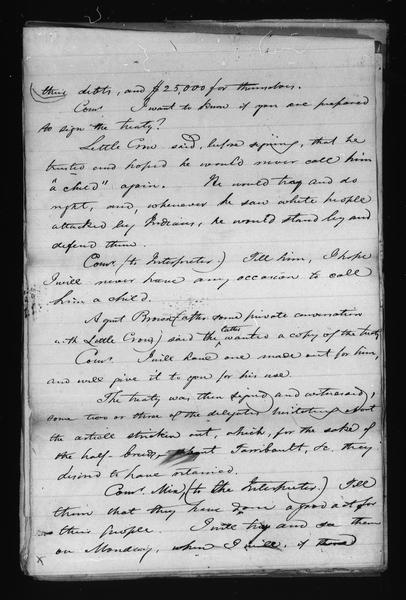 their debts, and $25,000 for themselves.
Com^r. I want to know if you are prepared
to sign the treaty?
Little Crow said, before signing, that he
trusted and hoped he would never call him
"a child" again. He would try and do
right, and, whenever he saw white people
attacked by Indians, he would stand by and
defend them.
Com^r. (to Interpreter.) Tell him, I hope
I will never have any occasion to call
him a child.
Agent Brown (after some private conversation
with Little Crow) said the latter wanted a copy of the treaty
Com^r. I will have one made out for him,
and will give it to you for his use.
The treaty was then signed and witnessed,
some two or three of the delegates
the article stricken out, which, for the sake of
the half breeds, Faribault, &c. they
desired to have retained.
Com^r. Mix (to the Interpreter.) Tell
them that they have done a good act for
their people. I will try and see them
on Monday, when I will, if